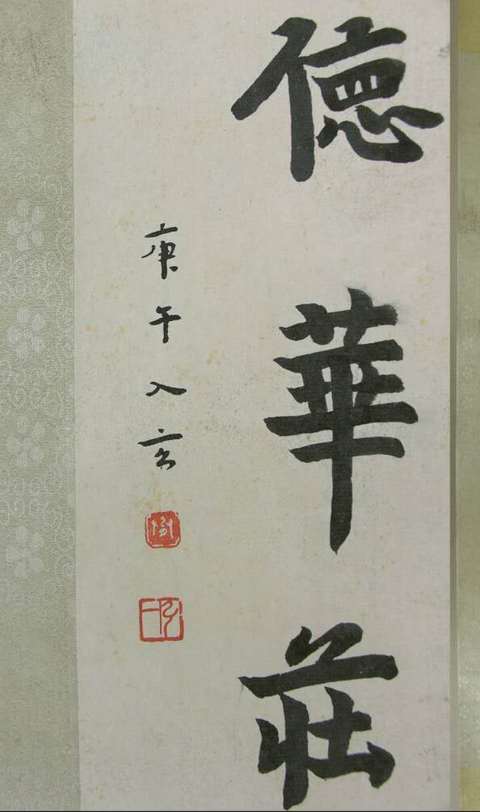 德華莊
庚午入玄